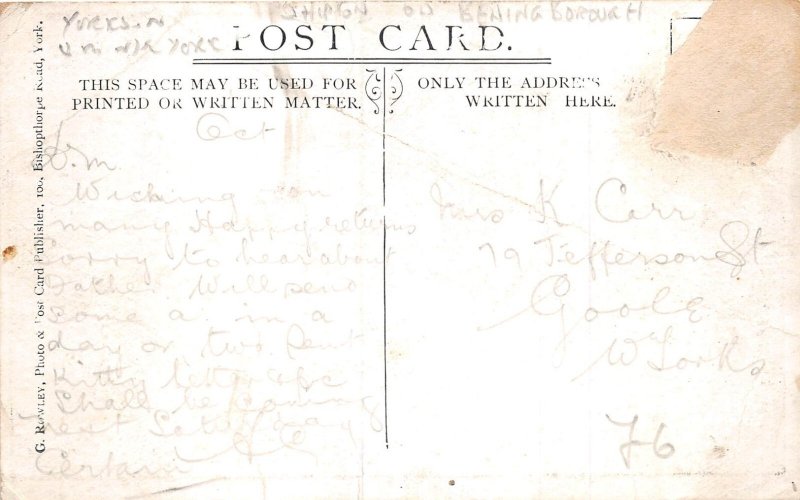 YORKS. N
YORK
SHIPTON ON BENINGBOROUGH
POST CARD.
THIS SPACE MAY BE USED FOR
PRINTED OR WRITTEN MATTER.
ONLY THE ADDRESS
WRITTEN HERE.
G. ROWLEY, Photo & Post Card Publisher, 100, Bishopthorpe Road, York.
Oct
Wishing you
many Happy returns
sorry to hear about
Father Will send
some in a
day or two Sent
Kitty letter
Shall be coming
next Saturday
Certain
K Carr
79 Jefferson St
Goole
W Yorks
76